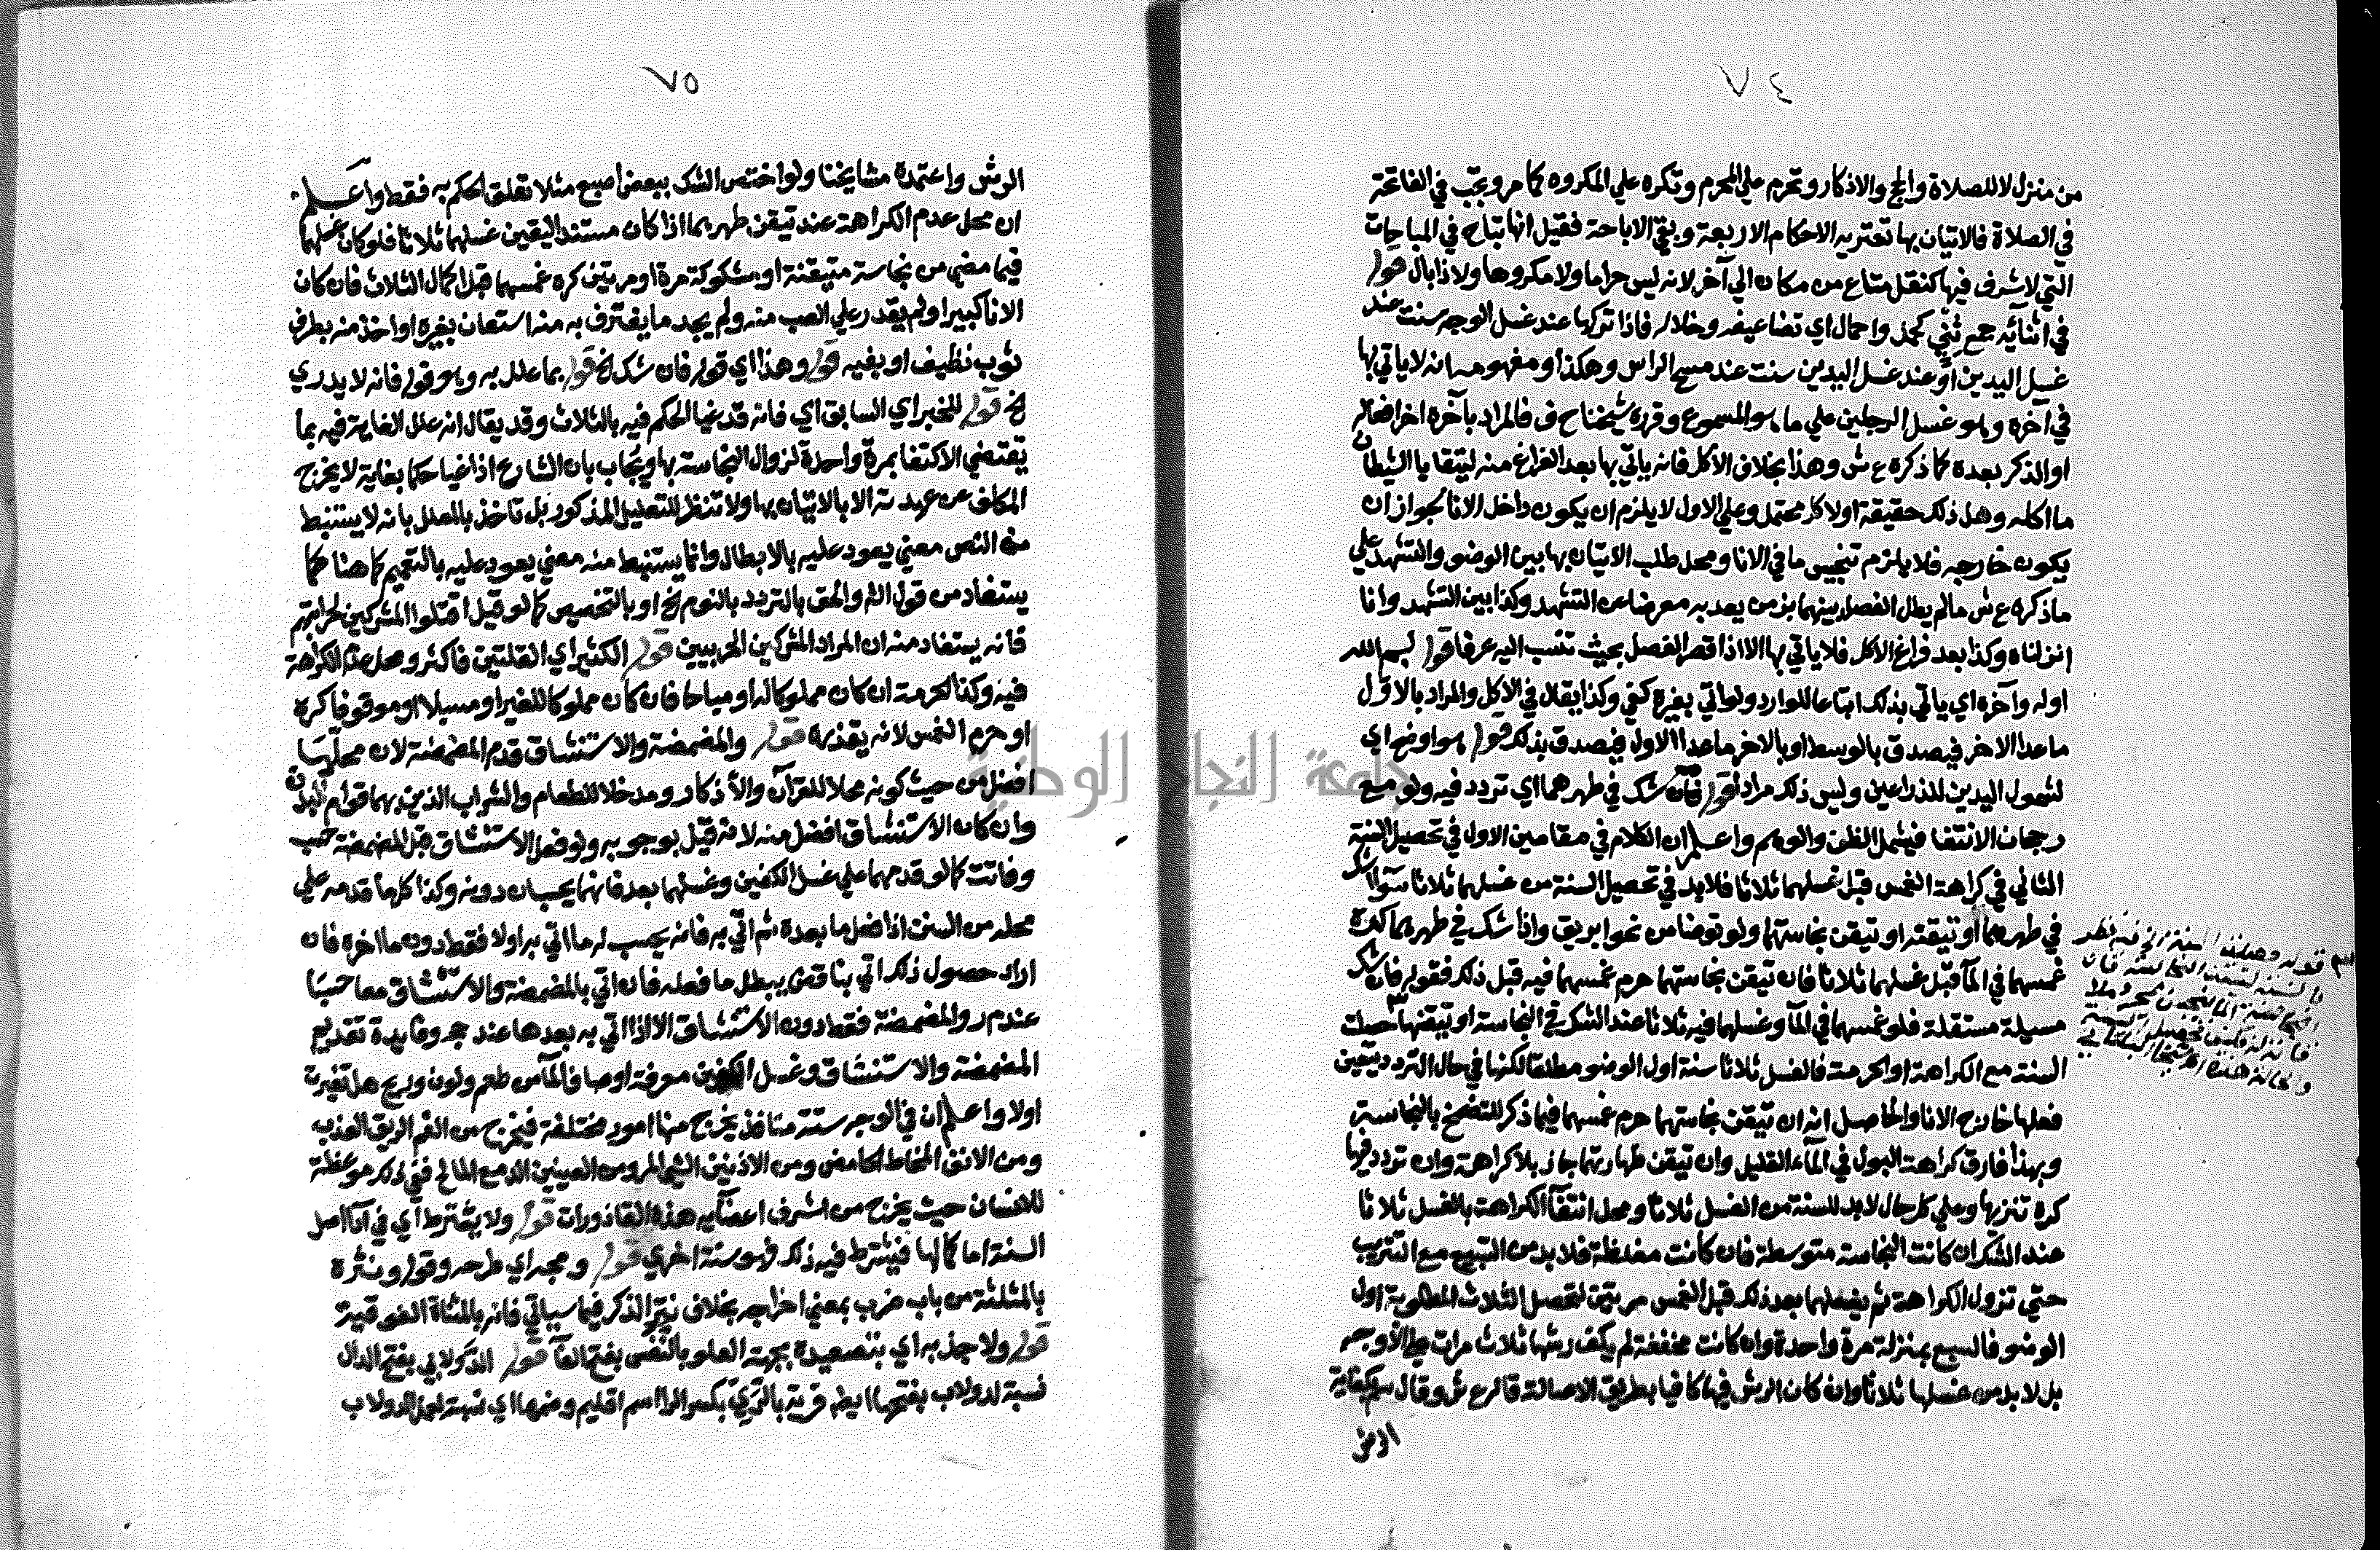 ٧٤
من منزل لا للصلاة والحج والاذكار وتحرم علي المحرم وتكره علي المكروه كما مر وتجب في الفاتحة
في الصلاة فالاتيان بها تعتريه الاحكام الاربعة وبقي الاباحة فقيل انها تباح في المباحات
التي لا شرف فيها كنقل متاع من مكان الي آخر لانه ليس حراما ولا مكروها ولا ذا بال قوله
في اثنائه جمع ثني كحمل واحمال اي تضاعيفه وخلاله فاذا تركها عند غسل الوجه سنت عند
غسل اليدين او عند غسل اليدين سنت عند مسح الراس وهكذا ومفهومه انه لا ياتي بها
في اخره وهو غسل الرجلين علي ما هو المسموع وقرره شيخنا ح ف فالمراد بآخره اخر افعاله
او الذكر بعده كما ذكره ع ش وهذا بخلاف الاكل فانه ياتي بها بعد الفراغ منه ليتقايا الشيطان
ما اكله وهل ذلك حقيقة اولا كل محتمل وعلي الاول لا يلزم ان يكون داخل الانا لجواز ان
يكون خارجه فلا يلزم تنجيس ما في الانا ومحل طلب الاتيان بها بين الوضو والتشهد علي
ماذكره ع ش مالم يطل الفصل بينهما بزمن يعد به معرضا عن التشهد وكذا بين التشهد وانا
انزلناه وكذا بعد فراغ الاكل فلا ياتي بها الا اذا قصر الفصل بحيث تنسب اليه عرفا قوله بسم الله
اوله وآخره اي ياتي بذلك اتباعا للوارد ولو اتي بغيره كفي وكذا يقال في الاكل والمراد بالاول
ما عدا الاخر فيصدق بالوسط او بالاخر ما عدا الاول فيصدق بذلك قوله هو اوضح اي
لشمول اليدين للذراعين وليس ذلك مرادا قوله فان شك في طهرهما اي تردد فيه ولو مع
رجحان الانتفا فيشمل الظن والوهم واعلم ان الكلام في مقامين الاول في تحصيل السنة
الثاني في كراهة الغمس قبل غسلهما ثلاثا فلابد في تحصيل السنة من غسلهما ثلاثا سوا شك
في طهرهما او تيقنه او تيقن نجاستهما ولو توضا من نحو ابريق واذا شك في طهرهما كره
غمسهما في المآ قبل غسلهما ثلاثا فان تيقن نجاستهما حرم غمسهما فيه قبل ذلك فقوله فان شك
مسيلة مستقلة فلو غمسهما في المآ وغسلهما فيه ثلاثا عند الشك في النجاسة او تيقنها حصلت
السنة مع الكراهة او الحرمة فالغسل ثلاثا سنة اول الوضو مطلقا لكنها في حال التردد يتعين
فعلها خارج الانا والحاصل انه ان تيقن نجاستهما حرم غمسهما فيما ذكر للتضمخ بالنجاسة
وبهذا فارق كراهة البول في المآء القليل وان تيقن طهارتهما جاز بلا كراهة وان تردد فيها
كره تنزيها وعلي كل حال لابد للسنة من الغسل ثلاثا ومحل انتفآ الكراهة بالغسل ثلاثا
عند الشك ان كانت النجاسة متوسطة فان كانت مغلظة فلا بد من التسبيع مع التتريب
حتي تزول الكراهة ثم يغسلهما بعد ذلك قبل الغمس مرتين لتحصل الثلاث المطلوبة اول
الوضو فالسبع بمنزلة مرة واحدة وان كانت مخففة لم يكف رشها ثلاث مرات علي الأوجه
بل لابد من غسلها ثلاثا وان كان الرش فيها كافيا بطريق الاصالة قاله ع ش وقال بكفاية
الرش
٧٥
الرش واعتمده مشايخنا ولو اختص الشك ببعض اصبع مثلا تعلق الحكم به فقط واعلم
ان محل عدم الكراهة عند تيقن طهرهما اذا كان مستند اليقين غسلهما ثلاثا فلو كان غسلهما
فيما مضي من نجاسة متيقنة او مشكوكة مرة او مرتين كره غمسهما قبل اكمال الثلاث فان كان
الانا كبيرا ولم يقدر علي الصب منه ولم يجد ما يغترف به منه استعان بغيره او اخذ منه بطرف
ثوب نظيف او بفيه قوله وهذا اي قوله فان شك الخ قوله بما علل به وهو قوله فانه لا يدري
الخ قوله للخبر اي السابق اي فانه قد غيا الحكم فيه بالثلاث وقد يقال انه علل الغاية فيه بما
يقتضي الاكتفا بمرة واحدة لزوال النجاسة بها ويجاب بان الشارع اذا غيا حكما بغاية لا يخرج
المكلف عن عهدته الا بالاتيان بها ولا تنظر للتعليل المذكور بل تاخذ بالمعلل بانه لا يستنبط
من النص معني يعود عليه بالابطال وانما يستنبط منه معني يعود عليه بالتعميم كما هنا كما
يستفاد من قول الش والحق بالتردد بالنوم الخ او بالتخصيص كما لو قيل اقتلوا المشركين لحرابتهم
فانه يستفاد منه ان المراد المشركين الحربيين قوله الكثير اي القلتين فاكثر ومحل عدم الكراهة
فيه وكذا الحرمة ان كان مملوكا له او مباحا فان كان مملوكا للغير او مسبلا او موقوفا كره
او حرم الغمس لانه يقذره قوله والمضمضة والاستنشاق قدم المضمضة لان محلها
افضل من حيث كونه محلا للقرآن والأذكار ومدخلا للطعام والشراب الذين بهما قوام البدن
وان كان الاستنشاق افضل منه لانه قيل بوجوبه ولو فعل الاستنشاق قبل المضمضة حسب
وفاتت كما لو قدمهما علي غسل الكفين وغسلهما بعد فانهما يحسبان دونه وكذا كل ما قدمه علي
محله من السنن اذا فعل ما بعده ثم اتي به فانه يحسب له ما اتي به اولا فقط دون ما اخره فان
اراد حصول ذلك اتي بناقض يبطل ما فعله فان اتي بالمضمضة والاستنشاق معا حسبا
عند م ر والمضمضة فقط دون الاستنشاق الا اذا اتي به بعدها عند حجر وفايدة تقديم
المضمضة والاستنشاق وغسل الكفين معرفة اوصاف المآ من طعم ولون وريح هل تغيرت
اولا واعلم ان في الوجه ستة منافذ يخرج منها امور مختلفة فيخرج من الفم الريق العذب
ومن الانف المخاط الحامض ومن الاذنين الشي المر ومن العينين الدمع المالح ففي ذلك موعظة
للانسان حيث يخرج من اشرف اعضآيه هذه القاذورات قوله ولا يشترط اي في اصل
السنة اما كمالها فيشترط فيه ذلك فهو سنة اخري قوله ومجه اي طرحه وقوله ونثره
بالمثلثة من باب ضرب بمعني اخراجه بخلاف نتر الذكر فيما سياتي فانه بالمثناة الفوقية
قوله ولا جذبه اي بتصعيده بجهة العلو بالنفس بفتح الفآ قوله الدولابي بفتح الدال
نسبة لدولاب بفتحها ايضا قرية بالري بكسر الرا اسم اقليم وضمها اي نسبة لعمل الدولاب
جامعة النجاح الوطنية